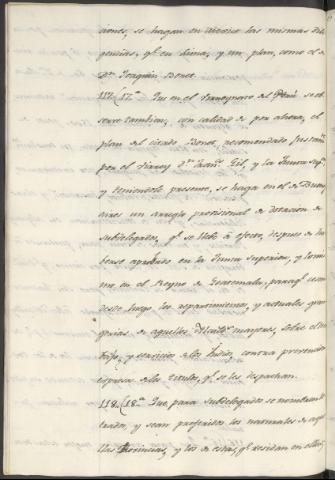 ciones, se hagan en dichos las mismas dili-
gencias, qᵉ en Lima, y un plan, como el de
Dⁿ Joaquin Bonet.
117.(17.ª Que en el Virreynato del Perú se ob-
serve tambien, con calidad de por ahora, el
plan del citado Bonet, recomendado
por el Virrey Dⁿ Franᶜᵒ Gil, y la Junta Supᵒʳ
y teniendole presente, se haga en el de Buenos
aires un arreglo provisional de dotacion de
subdelegados, qᵉ se lleve á efecto, despues de ha-
berse aprobado en la Junta Superior, y lo mis-
mo en el Reyno de Guatemala, para qᵉ cesen
desde luego los repartimientos, y actuales gran-
gerias de aquellos Alcaldᵉˢ mayores, sobre el tra-
bajo, y servicios de los Indios, contra prevencion
expresa de los titulos, qᵉ se les despachan.
118.(18.ª Que para subdelegados se nombren
, y sean preferidos los naturales de aque-
llas Provincias, y los de estas, qᵉ residan en ellas,